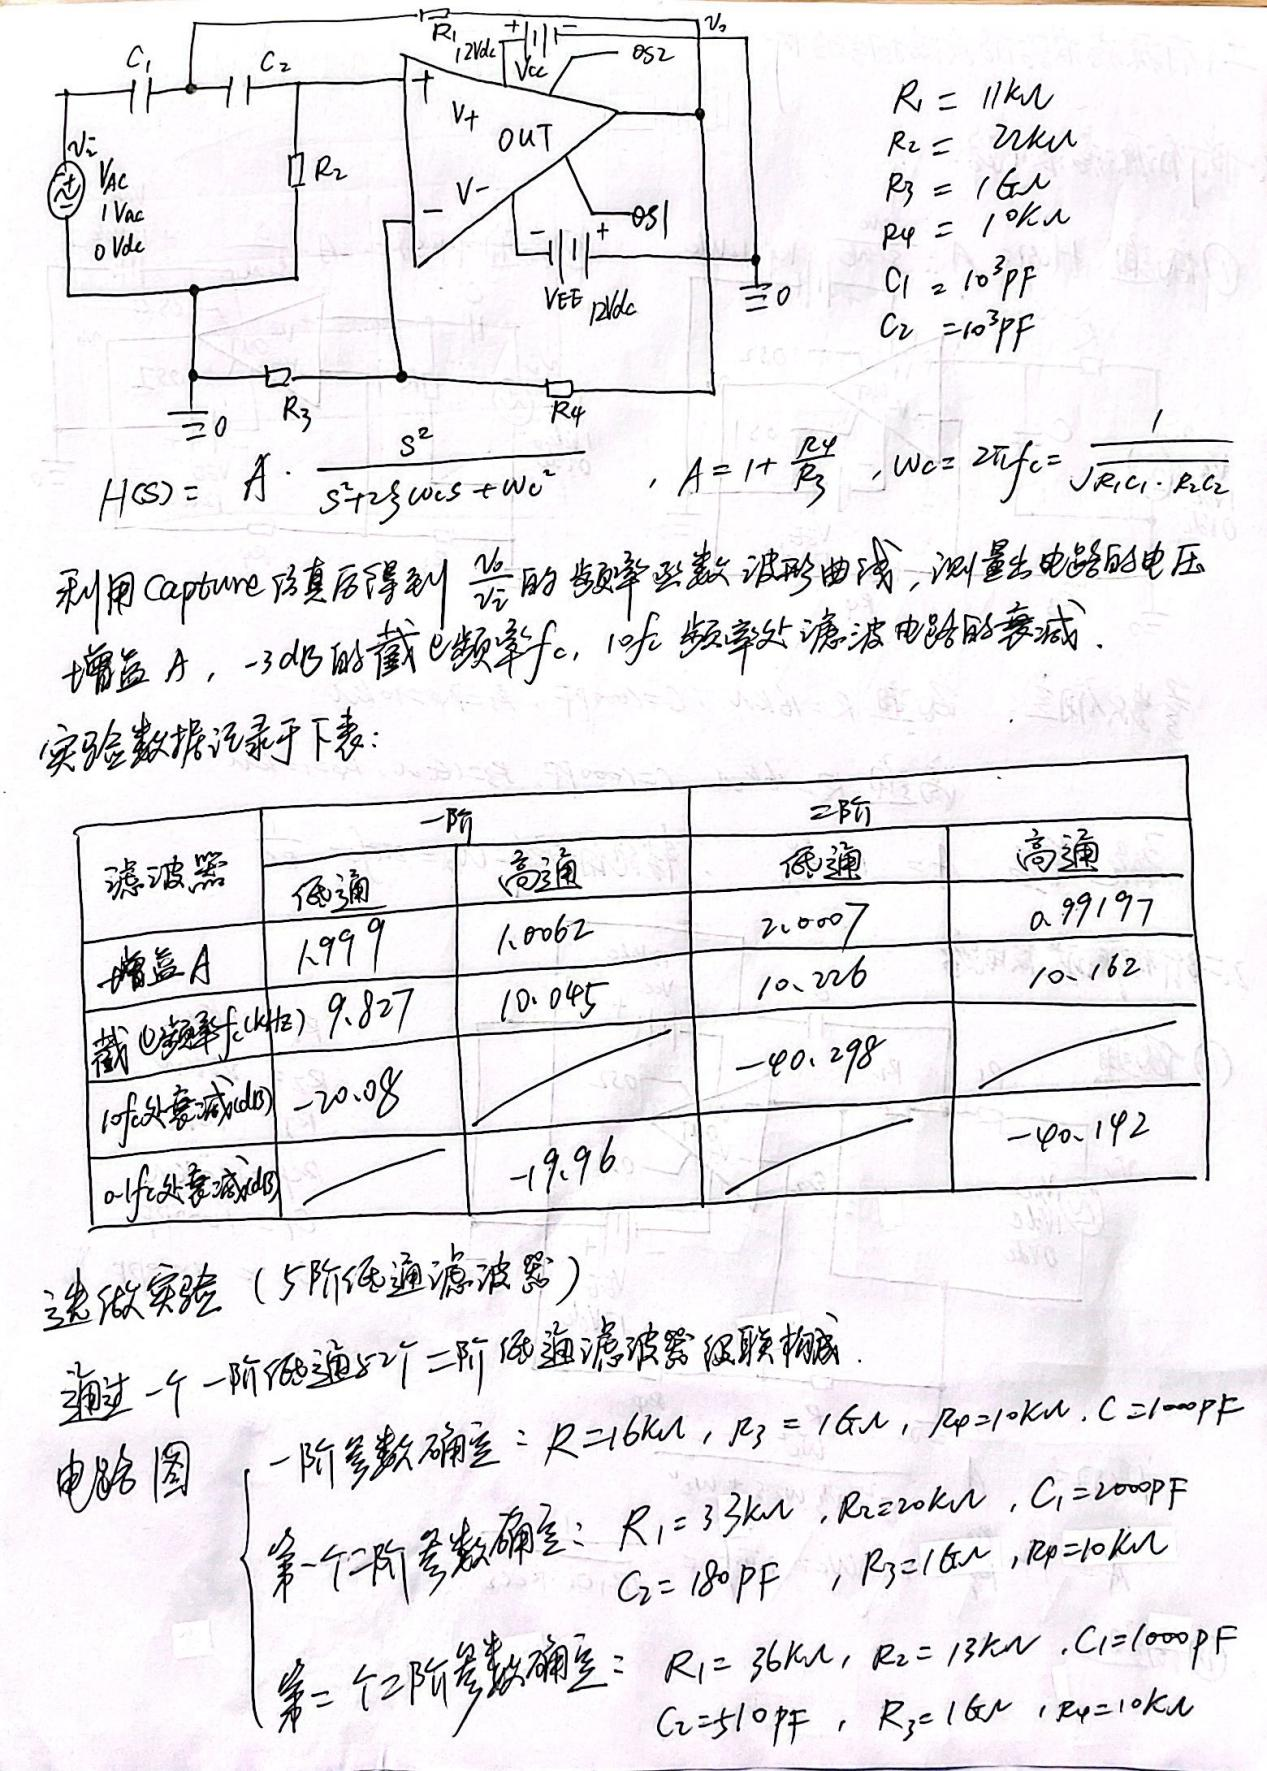 R₁
V₀
C₁
C₂
12Vdc
+ −
Vcc
OS2
+
V+
OUT
Vi
VAC
1Vac
0Vdc
R₂
V−
−
OS1
− +
VEE 12Vdc
0
R₃
R₄
0
R₁ = 11kΩ
R₂ = 22kΩ
R₃ = 1GΩ
R₄ = 10kΩ
C₁ = 10³PF
C₂ = 10³PF
H(S) = A · S² / (S²+2ξωcS+ωc²) , A = 1 + R₄/R₃ , ωc = 2πfc = 1/√(R₁C₁·R₂C₂)
利用Capture仿真后得到 V₀/Vi 的频率函数波形曲线,测量出电路的电压
增益A, -3dB的截止频率fc, 10fc频率处滤波电路的衰减.
实验数据记录于下表:
滤波器 一阶 二阶
低通 高通 低通 高通
增益A 1.999 1.0062 2.0007 0.99197
截止频率fc(kHz) 9.827 10.045 10.226 10.162
10fc处衰减(dB) -20.08 -40.298
0.1fc处衰减(dB) -19.96 -40.142
选做实验 (5阶低通滤波器)
通过一个一阶低通与2个二阶低通滤波器级联构成.
电路图
一阶参数确定: R=16kΩ, R₃=1GΩ, R₄=10kΩ. C=1000PF
第一个二阶参数确定: R₁=33kΩ, R₂=20kΩ, C₁=2000PF
C₂=180PF , R₃=1GΩ, R₄=10kΩ
第二个二阶参数确定: R₁=36kΩ, R₂=13kΩ. C₁=1000PF
C₂=510PF , R₃=1GΩ, R₄=10kΩ